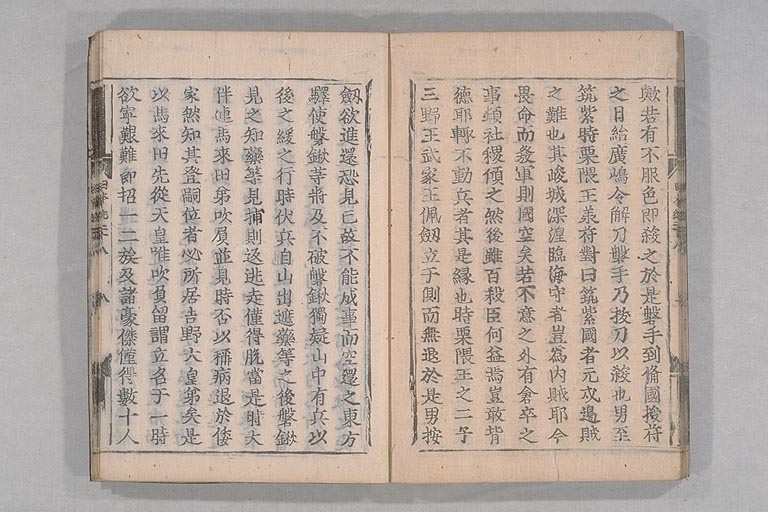 歟若有不服色即殺之於是磐手到備國授苻
之日紿廣嶋令解刀磐手乃拔刀以殺也男至
筑紫時栗隈王羕苻對曰筑紫國者元戍邊賊
之難也其峻城深湟臨海守者豈為内賊耶今
畏命而發軍則國空矣若不意之外有倉卒之
事頓社稷傾之然後雖百殺臣何益焉豈敢背
德耶輙不動兵者其是縁也時栗隈王之二子
三野王武家王佩劔立于側而無退於是男按
劔欲進還恐見亡故不能成事而空還之東方
驛使磐鍬等將及不破磐鍬獨疑山中有兵以
後之緩之行時伏兵自山出遮藥等之後磐鍬
見之知藥等見捕則返逃走僅得脱當是時大
伴連馬來田弟吹屓並見時否以稱病退於倭
家然知其登嗣位者必所居吉野大皇弟矣是
以馬來田先從天皇唯吹負留謂立名于一時
欲寧艱難即招一二族及諸豪傑僅得數十人